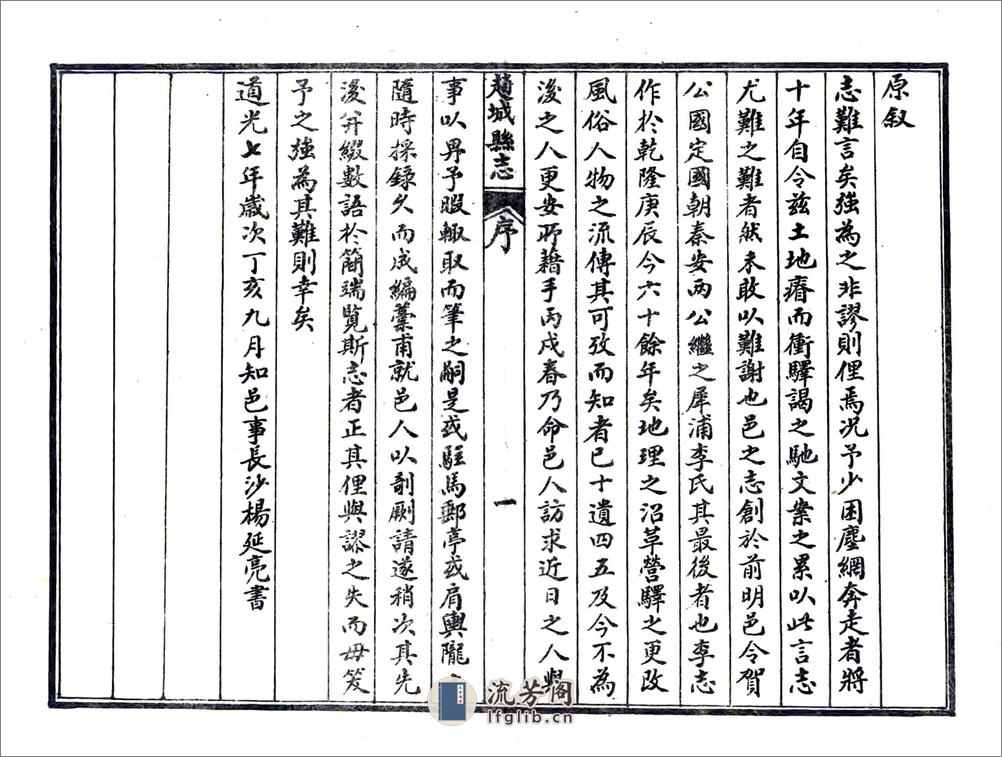 原叙
志難言矣強為之非謬則俚焉况予少困塵網奔走者將
十年自令兹土地瘠而衝驛謁之馳文案之累以此言志
尤難之難者然未敢以難謝也邑之志創於前明邑令賀
公國定國朝秦安兩公繼之犀浦李氏其最後者也李志
作於乾隆庚辰今六十餘年矣地理之沿革營驛之更改
風俗人物之流傳其可攷而知者已十遺四五及今不為
後之人更安所藉手丙戌春乃命邑人訪求近日之人與
趙城縣志 序 一
事以畀予暇輙取而筆之嗣是或駐馬郵亭或肩輿隴
隨時採錄久而成編藁甫就邑人以剞劂請遂稍次其先
後并綴數語於簡端覽斯志者正其俚與謬之失而毋笑
予之強為其難則幸矣
道光七年歲次丁亥九月知邑事長沙楊延亮書
流芳阁
lfglib.cn